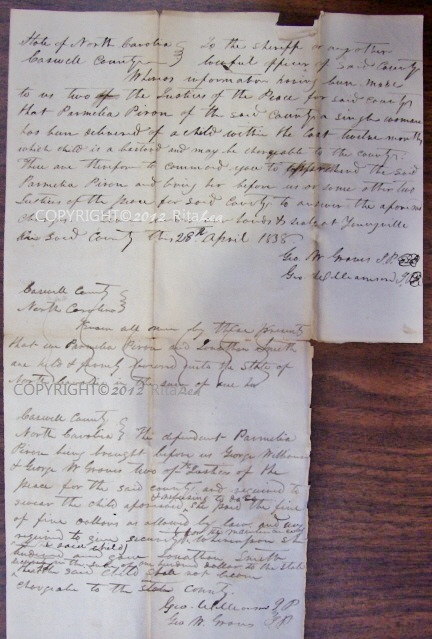 State of North Carolina } To the sheriff or any other
Caswell County } lawful officer of said County
Whereas information having been made
to us two of the Justices of the Peace for said county
that Parmelia Piron of the said County a single woman
has been delivered of a child within the last twelve months
which child is a bastard and may be chargeable to the county.
These are therefore to command you to apprehend the said
Parmelia Piron and bring her before us or some other two
Justices of the peace for said County to answer the aforesaid
charge. hands & seals at Youngville
in said County this 28th April 1838
Geo. W Groves J.P.
Geo. Williamson J.P.
COPYRIGHT©2012 Ritahea
Caswell County }
North Carolina }
Know all men by these presents
that we Parmelia Piron and Jonathan Smith
are held & firmly bound unto the State of
North Carolina in the sum of one hu
COPYRIGHT©2012 Ritahea
Caswell County }
North Carolina } The defendant Parmelia
Piron being brought before us George Williamson
& George W Groves two of the Justices of the
peace for the said county and required to
& refusing to do so
swear the child aforesaid, she paid the fine
of five dollars as allowed by law and was
required to give security for the maintenance
of said child whereupon she
and gave Jonathan Smith
in the sum of one hundred dollars to the state
that the said child shall not become
chargeable to the state county.
Geo. Williamson J.P.
Geo W. Groves J.P.